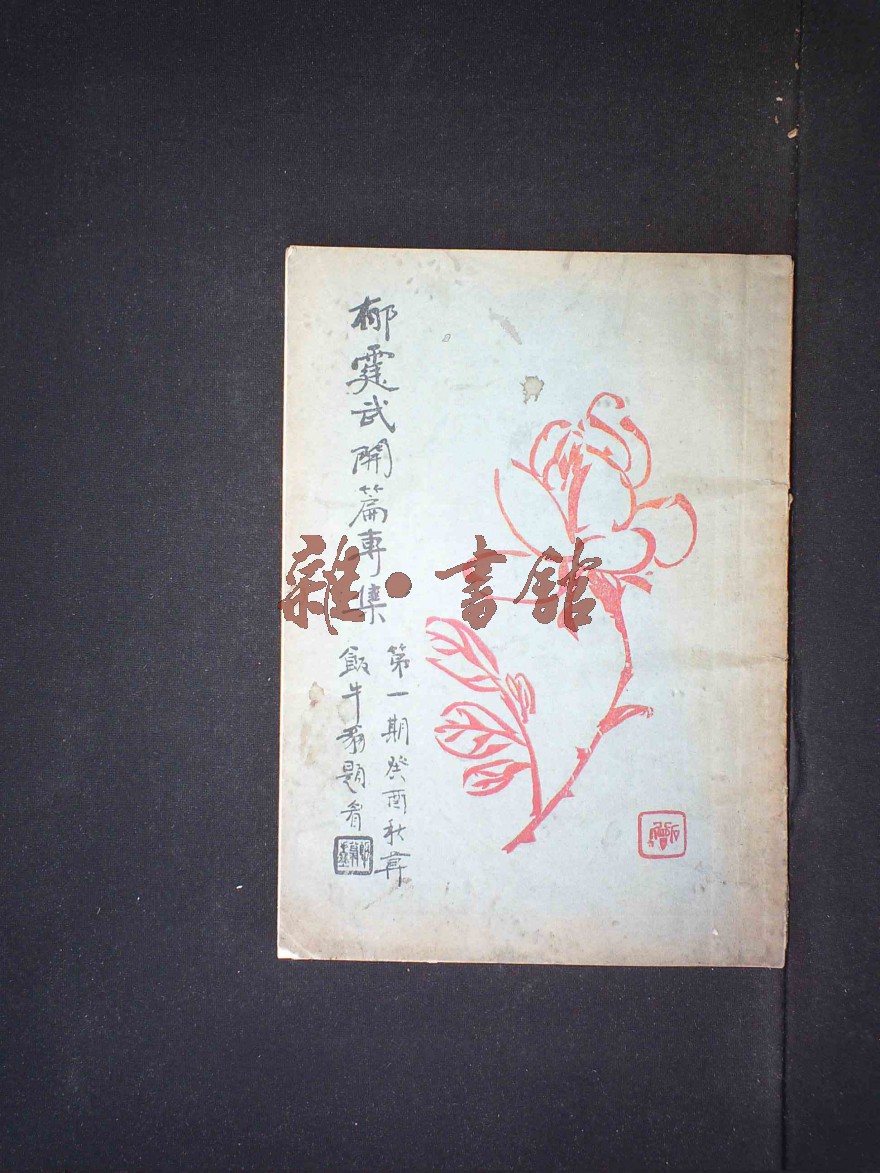 郁霆武開篇專集
第一期癸酉秋
飯牛翁題
雜·書館